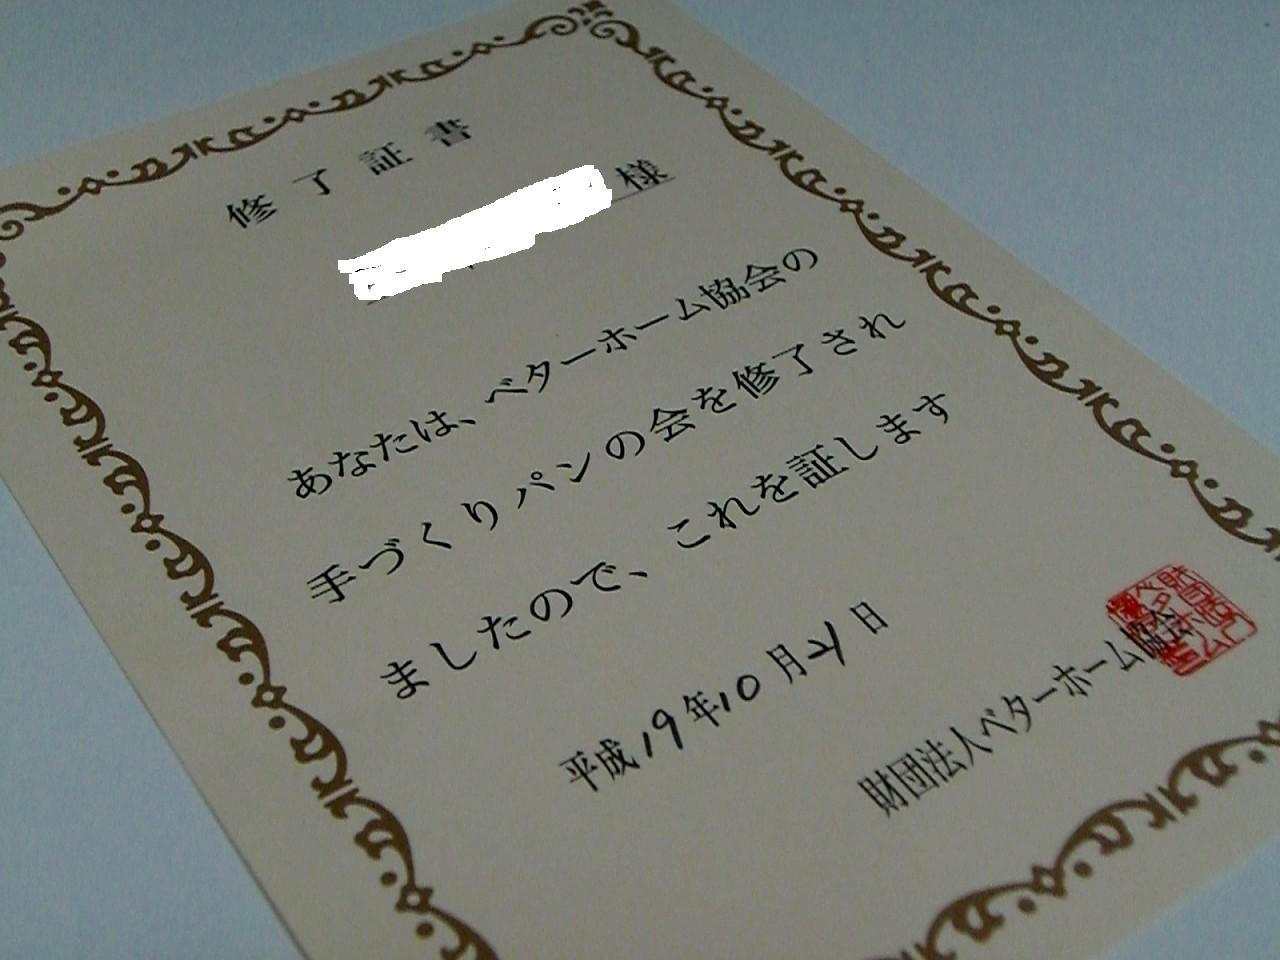 修了証書
様
あなたは、ベターホーム協会の
手づくりパンの会を修了され
ましたので、これを証します
平成19年10月21日
財団法人ベターホーム協会